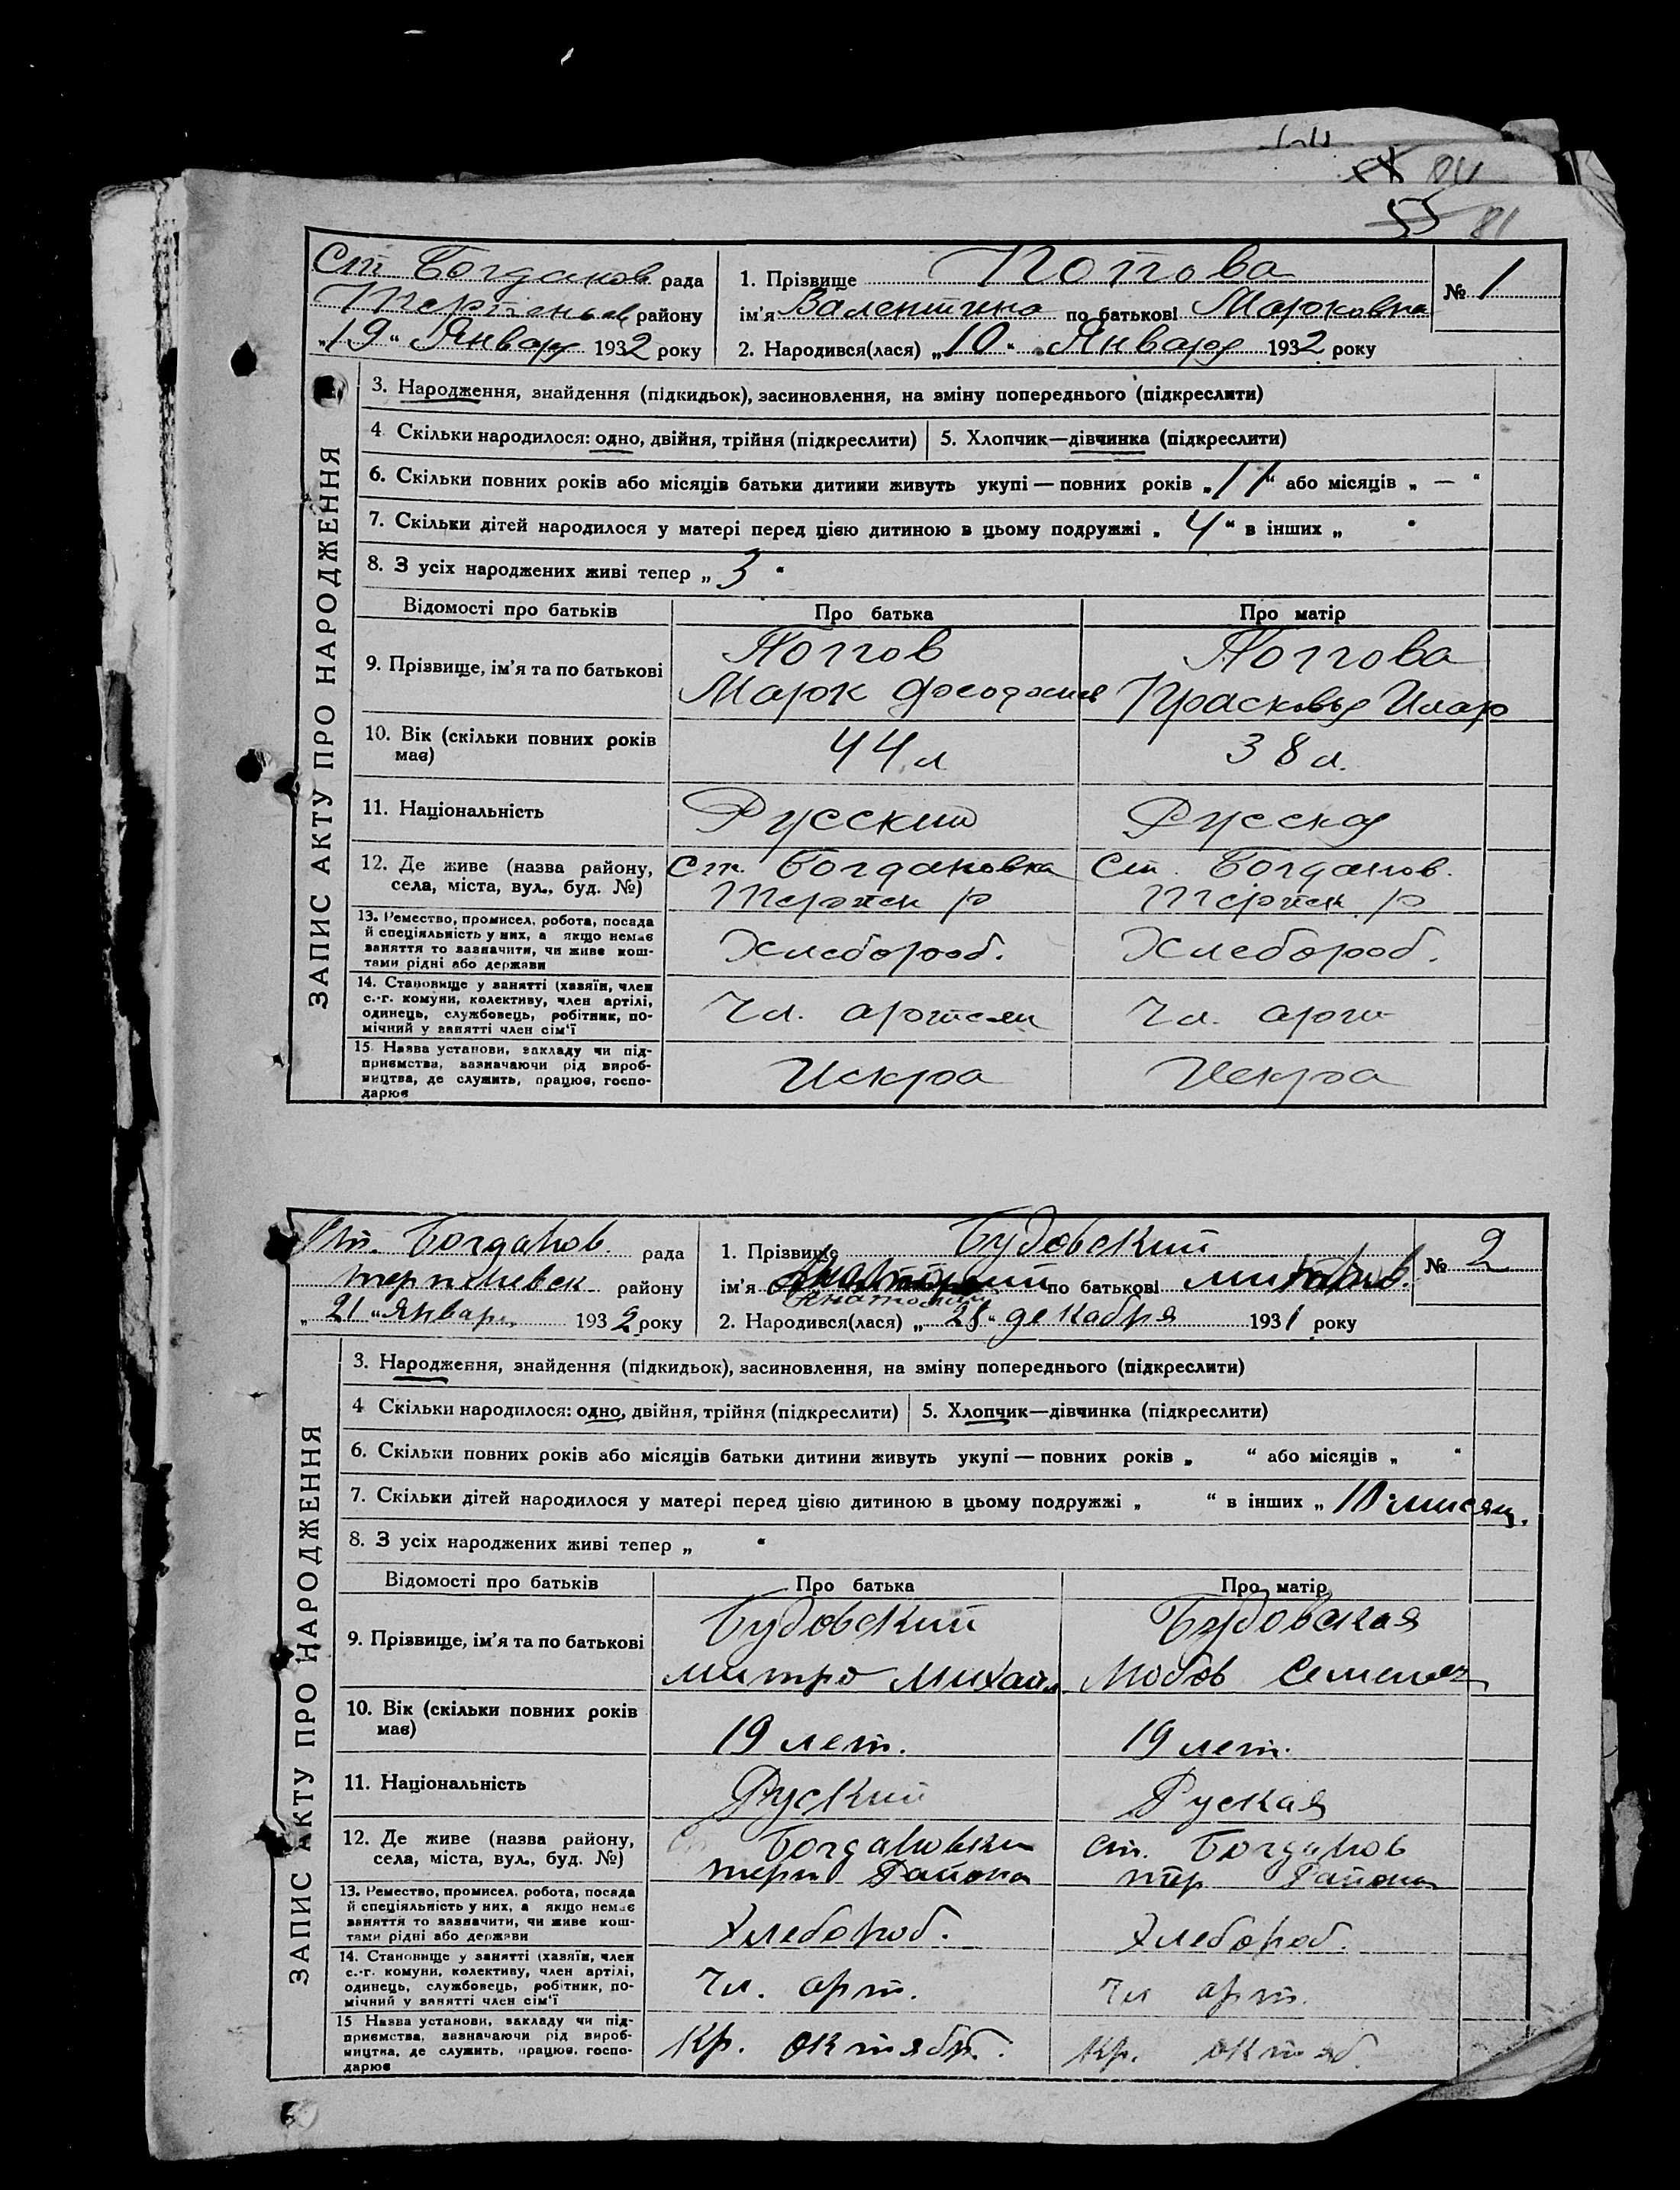 55 81
Ст Богданов рада
району
"19" Января 1932 року
1. Прізвище Попова
ім'я Валентина по батькові Марковна
№ 1
2. Народився(лася) „10" Января 1932 року
ЗАПИС АКТУ ПРО НАРОДЖЕННЯ
3. Народження, знайдення (підкидьок), засиновлення, на зміну попереднього (підкреслити)
4 Скільки народилося: одно, двійня, трійня (підкреслити) 5. Хлопчик—дівчинка (підкреслити)
6. Скільки повних років або місяців батьки дитини живуть укупі — повних років „11" або місяців „ — "
7. Скільки дітей народилося у матері перед цією дитиною в цьому подружжі „ 4 " в інших „ "
8. З усіх народжених живі тепер „ 3 "
Відомості про батьків Про батька Про матір
9. Прізвище, ім'я та по батькові
Попов
Марк
Попова
Прасковья Илар
10. Вік (скільки повних років
має)
44 л
38 л.
11. Національність
Русский
Русская
12. Де живе (назва району,
села, міста, вул., буд. №)
Ст. Богдановка
р
Ст. Богданов.
р
13. Ремество, промисел, робота, посада
й спеціяльність у них, а якщо немає
заняття то зазначити, чи живе кош-
тами рідні або держави
Хлебороб.
Хлебороб.
14. Становище у занятті (хазяїн, член
с.-г. комуни, колективу, член артілі,
одинець, службовець, робітник, по-
мічний у занятті член сім'ї
Чл. артели
Чл. арт
15. Назва установи, закладу чи під-
приємства, зазначаючи рід вироб-
ництва, де служить, працює, госпо-
дарює
Искра
Искра
Ст. Богданов. рада
району
„ 21 " Январ. 1932 року
1. Прізвище Будовский
ім'я Анатолий по батькові Митров.
№ 2
2. Народився(лася) „ 28 " декабря 1931 року
ЗАПИС АКТУ ПРО НАРОДЖЕННЯ
3. Народження, знайдення (підкидьок), засиновлення, на зміну попереднього (підкреслити)
4 Скільки народилося: одно, двійня, трійня (підкреслити) 5. Хлопчик—дівчинка (підкреслити)
6. Скільки повних років або місяців батьки дитини живуть укупі — повних років „ " або місяців „ "
7. Скільки дітей народилося у матері перед цією дитиною в цьому подружжі „ " в інших „ 10 мисяц.
8. З усіх народжених живі тепер „ "
Відомості про батьків Про батька Про матір
9. Прізвище, ім'я та по батькові
Будовский
Митро Михаил.
Будовская
Любов Семенов
10. Вік (скільки повних років
має)
19 лет.
19 лет.
11. Національність
Руский
Руская
12. Де живе (назва району,
села, міста, вул., буд. №)
Ст. Богдановки
терн Района
Ст. Богданов
тер Района
13. Ремество, промисел, робота, посада
й спеціяльність у них, а якщо немає
заняття то зазначити, чи живе кош-
тами рідні або держави
Хлебороб.
Хлебороб.
14. Становище у занятті (хазяїн, член
с.-г. комуни, колективу, член артілі,
одинець, службовець, робітник, по-
мічний у занятті член сім'ї
Чл. арт.
Чл арт.
15 Назва установи, закладу чи під-
приємства, зазначаючи рід вироб-
ництва, де служить, працює, госпо-
дарює
Кр. октябр.
Кр. октяб.